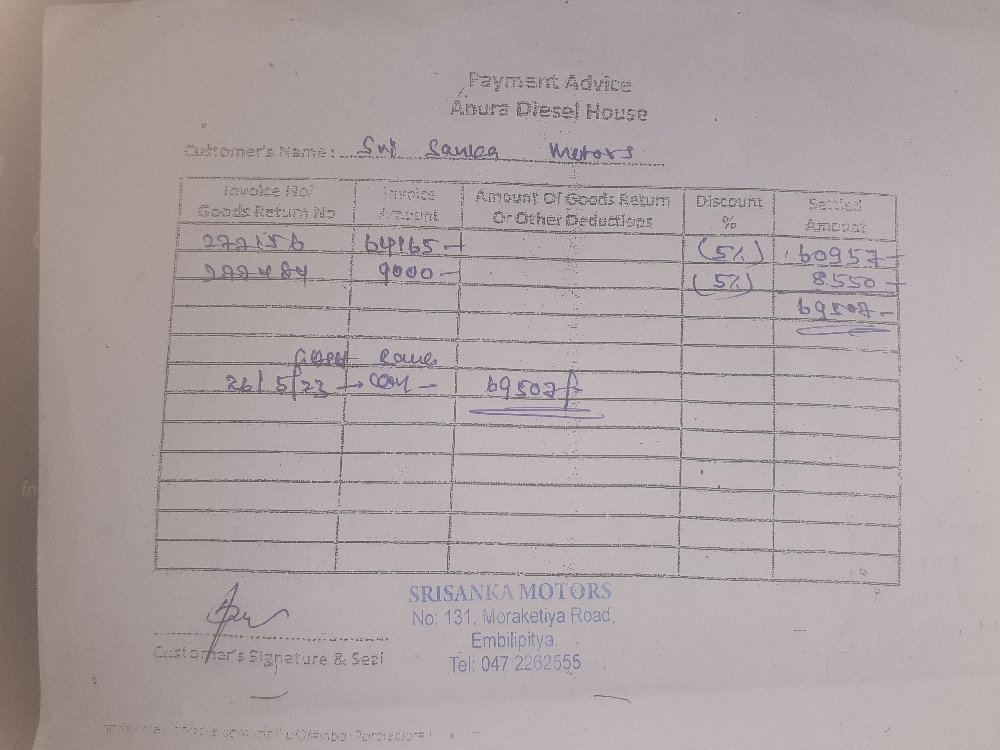 Payment Advice
Anura Diesel House
Customer's Name: Sri Sanka Motors
Invoice No/ Goods Return No Invoice Amount Amount Of Goods Return Or Other Deductions Discount % Settled Amount
272156 64165 - (5%) 60957 -
9000 - (5%) 8550 -
69507 -
26/5/23 → com - 69507/-
SRISANKA MOTORS
No: 131, Moraketiya Road,
Embilipitya.
Tel: 047 2262555
Customer's Signature & Seal